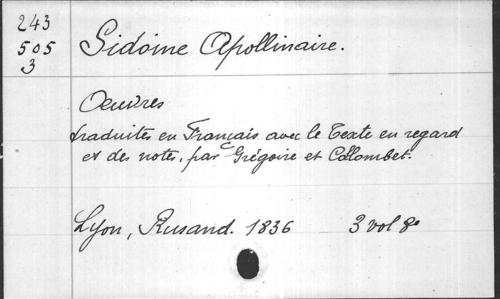 243
505
3
Sidoine Apollinaire.
Oeuvres
traduites en Français avec le Texte en regard
et des notes, par Grégoire et Collombet.
Lyon, Rusand. 1836 3 vol 8º